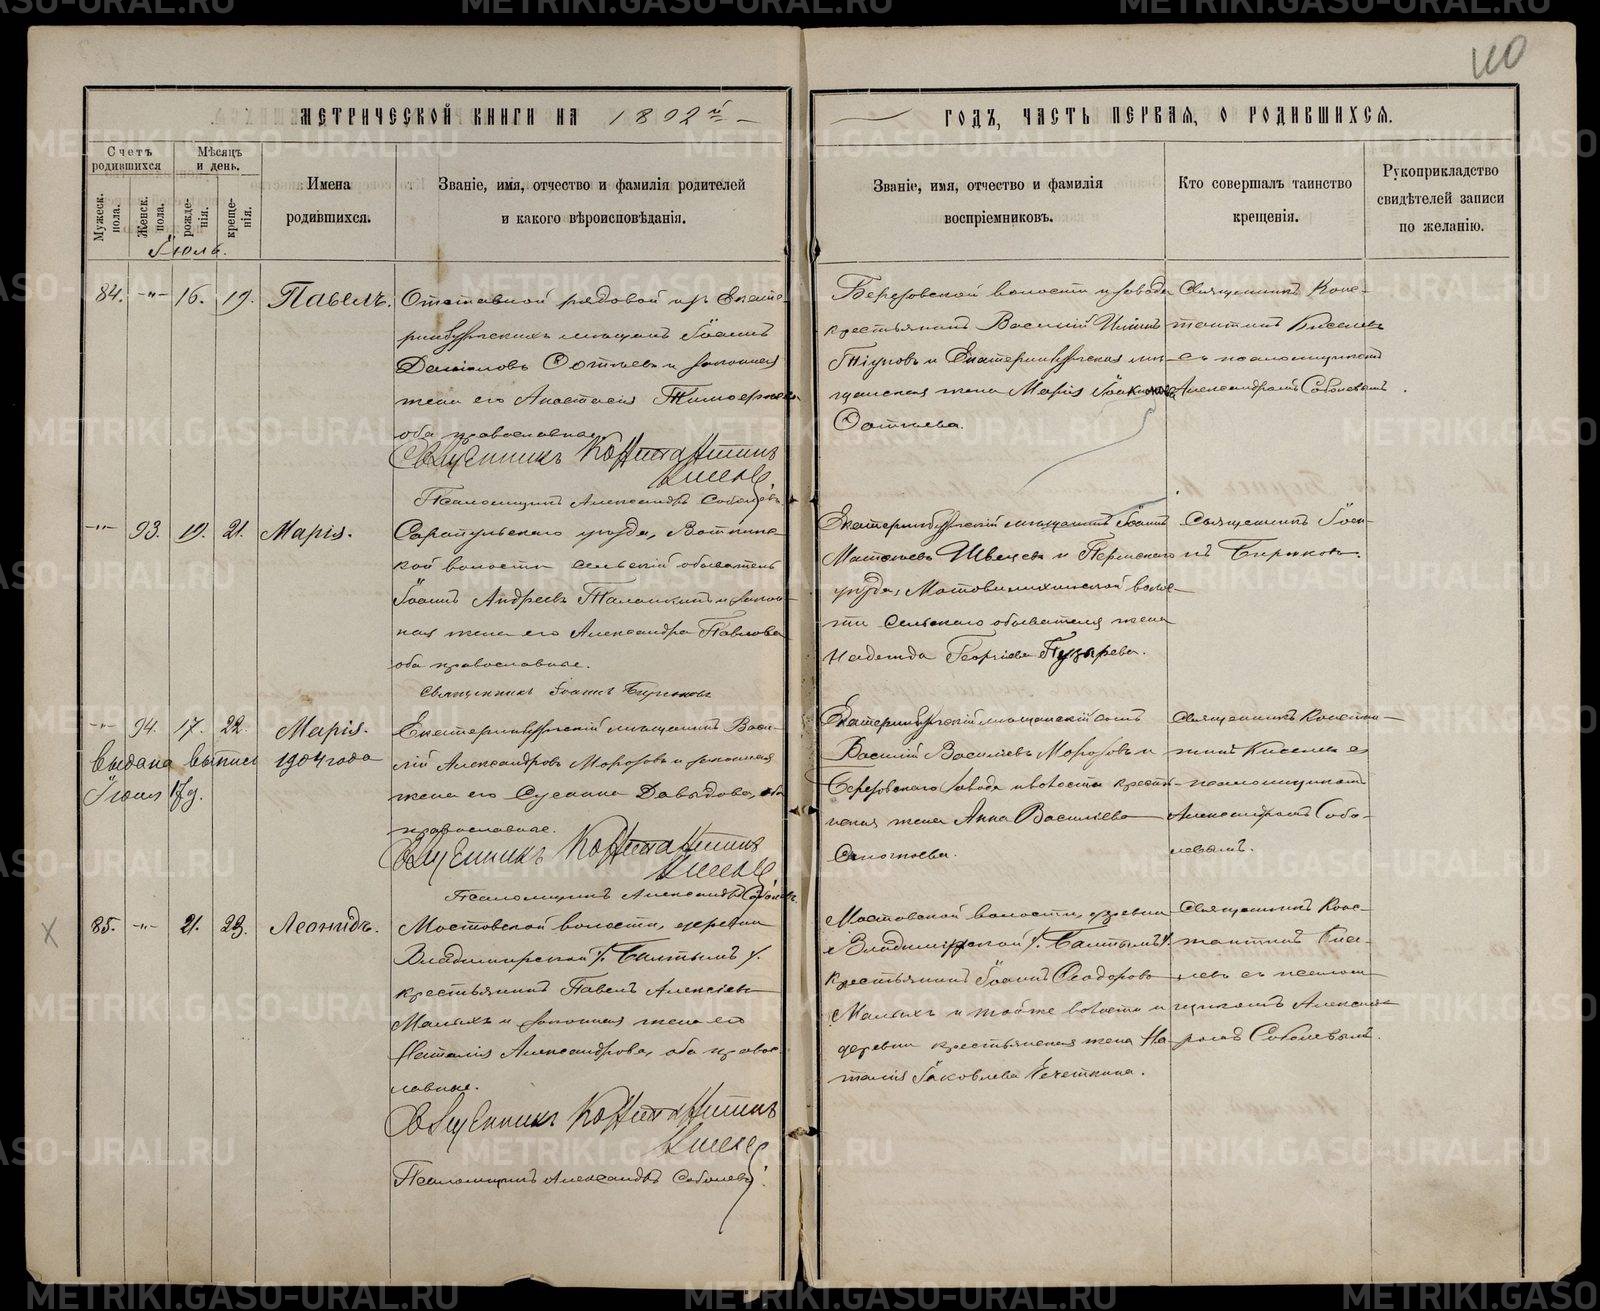 110
МЕТРИЧЕСКОЙ КНИГИ НА 1892 й
ГОДЪ, ЧАСТЬ ПЕРВАЯ, О РОДИВШИХСЯ.
Счетъ родившихся
Мѣсяцъ и день.
Мужеск. пола.
Женск. пола.
рожде-нія.
креще-нія.
Имена
родившихся.
Званіе, имя, отчество и фамилія родителей
и какого вѣроисповѣданія.
Званіе, имя, отчество и фамилія
воспріемниковъ.
Кто совершалъ таинство
крещенія.
Рукоприкладство
свидѣтелей записи
по желанію.
Іюль.
84. -"- 16. 19. Павелъ.
Отставной рядовой изъ Екате-
ринбургскихъ мѣщанъ Іоаннъ
Даниловъ и законная
жена его Анастасія
оба православные.
Священникъ Константинъ
Киселевъ
Псаломщикъ Александръ Соболевъ
Березовской волости и завода
крестьянинъ Василій
и Екатеринбургская мѣ-
щанская жена Марія
Священникъ Конс-
тантинъ Киселевъ
съ псаломщикомъ
Александромъ Соболевымъ.
-"- 93. 19. 21. Марія.
Сарапульскаго уѣзда, Воткинс-
кой волости сельскій обыватель
Іоаннъ Андреевъ и закон-
ная жена его Александра Павлова
оба православные.
Священникъ Іоаннъ Бирюковъ
Екатеринбургскій мѣщанинъ Іоаннъ
Матвѣевъ Швецовъ и Пермскаго
уѣзда, Мотовилихинской волос-
ти сельскаго обывателя жена
Надежда Георгіева Пузырева.
Священникъ Іоан-
нъ Бирюковъ.
-"- 94. 17. 22. Марія.
Выдана выпись 1904 года
Іюня 17 д.
Екатеринбургскій мѣщанинъ Васи-
лій Александровъ Морозовъ и законная
жена его Сусанна Давыдова, оба
православные.
Священникъ Константинъ
Киселевъ
Псаломщикъ Александръ Соболевъ.
Екатеринбургскій мѣщанскій сынъ
Василій Васильевъ Морозовъ и
Березовскаго завода и волости кресть-
янская жена Анна Васильева
Священникъ Констан-
тинъ Киселевъ съ
псаломщикомъ
Александромъ Собо-
левымъ.
85. -"- 21. 23. Леонидъ.
Мостовской волости, деревни
Владимірской /: Балтымъ :/
крестьянинъ Павелъ Алексѣевъ
Малыхъ и законная жена его
Наталія Александрова, оба правос-
лавные.
Священникъ Константинъ
Киселевъ
Псаломщикъ Александръ Соболевъ.
Мостовской волости, деревни
Владимірской /: Балтымъ :/
крестьянинъ Іоаннъ Ѳеодоровъ
Малыхъ и той же волости и
деревни крестьянская жена На-
талія Іаковлева Чечеткина.
Священникъ Конс-
тантинъ Кисе-
левъ съ псалом-
щикомъ Александ-
ромъ Соболевымъ.
METRIKI.GASO-URAL.RU